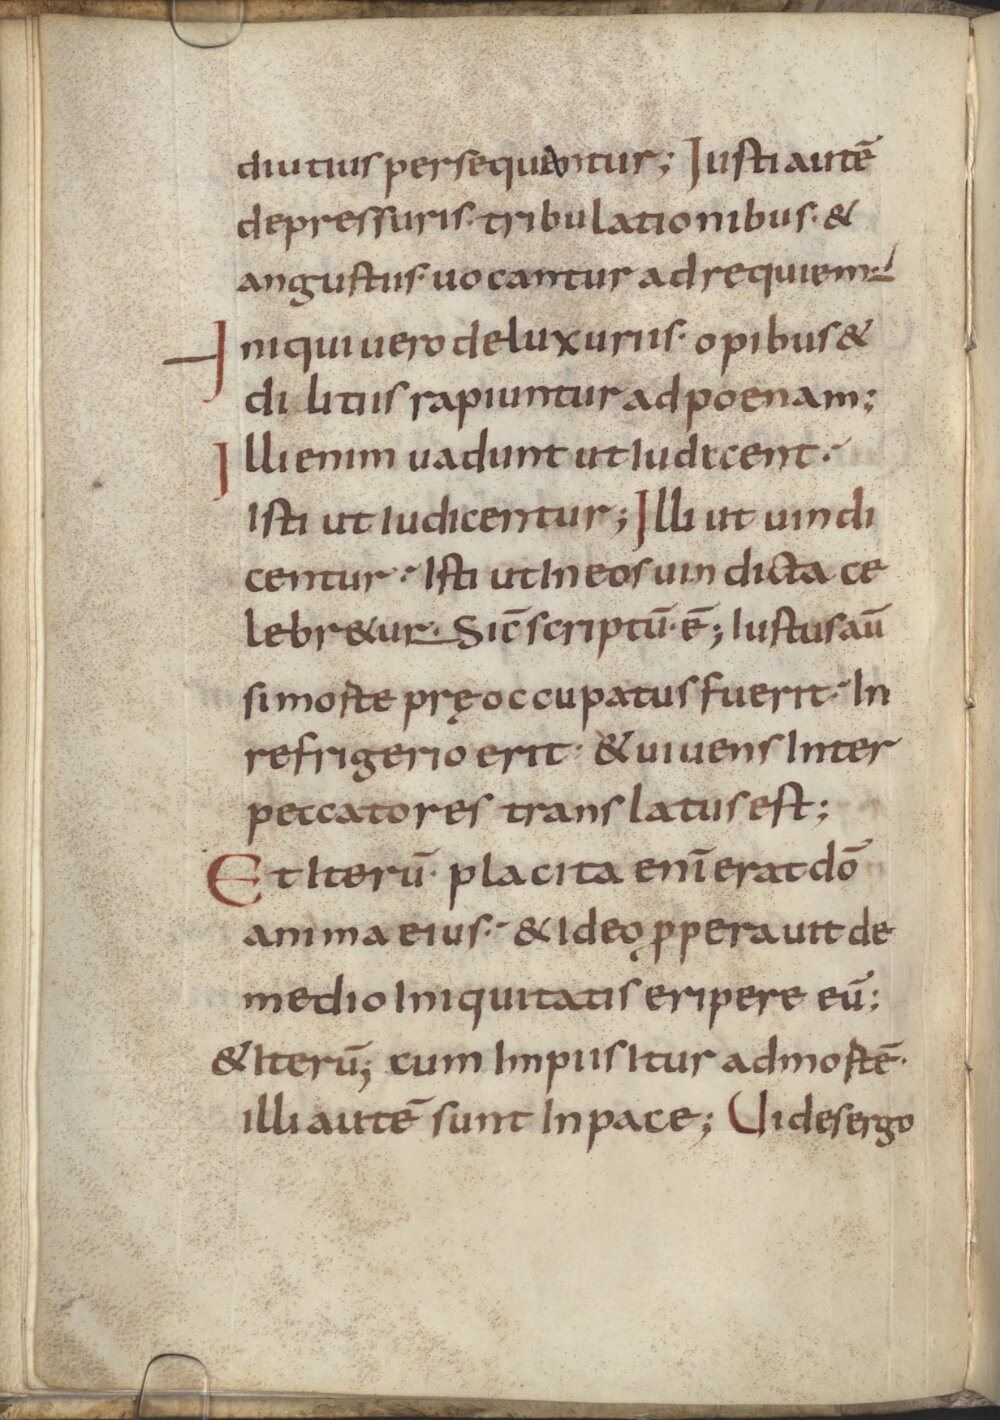 diutius persequantur; Iusti autē
depressuris· tribulationibus· &
angustiis· uocantur ad requiem·
Iniqui uero deluxuriis· opibus &
dilitiis rapiuntur ad poenam;
Illi enim uadunt ut iudicent·
Isti ut iudicentur; Illi ut uindi
centur· Isti ut in eos uindicta ce
lebr&ur· Sic̄ scriptū· ē; Iustus aū
si morte pręoccupatus fuerit· In
refrigerio erit· & uiuens inter
peccatores translatus est;
Et iterū· placita enī erat dō
anima eius· & ideo ꝓperauit de
medio iniquitatis eripere eū;
& iterū; cum impiis itur ad mortē·
illi autē sunt in pace; Uides ergo